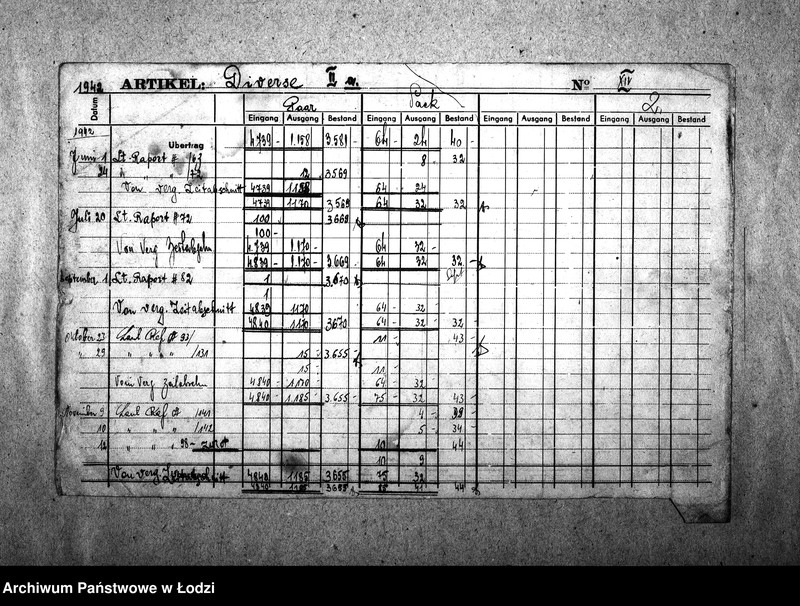 1942 ARTIKEL: Diverse II a. Nº XIV
Datum Paar Pack 2.
Eingang Ausgang Bestand Eingang Ausgang Bestand Eingang Ausgang Bestand Eingang Ausgang Bestand
1942 Übertrag 4739 1.158 3.581 64 24 40
Juni 1 Lt. Raport # /63 8 32
24 " " " /72 12 3.569
Von verg. Zeitabschnitt 4739 1158 64 24
4739 1170 3569 64 32 32
Juli 20 Lt. Raport # 72 100 3669
100
Von Verg 4739 1.170 64 32
4839 1.170 3.669 64 32 32
September 1 Lt. Raport # 82 1 3.670
1
Von verg. Zeitabschnitt 4839 1170 64 32
4840 1170 3670 64 32 32
Oktober 23 # 93/ 11 43
" 29 " " " /131 15 3.655
15 11
Vom Verg 4.840 1.170 64 32
4.840 1.185 3.655 75 32 43
November 9 # /141 4 39
10 " " " /142 5 34
" " " 98 - 10 44
10 9
Von verg. Zeitabschnitt 4840 1185 3655 75 32
4840 1185 3655 85 41 44
Archiwum Państwowe w Łodzi